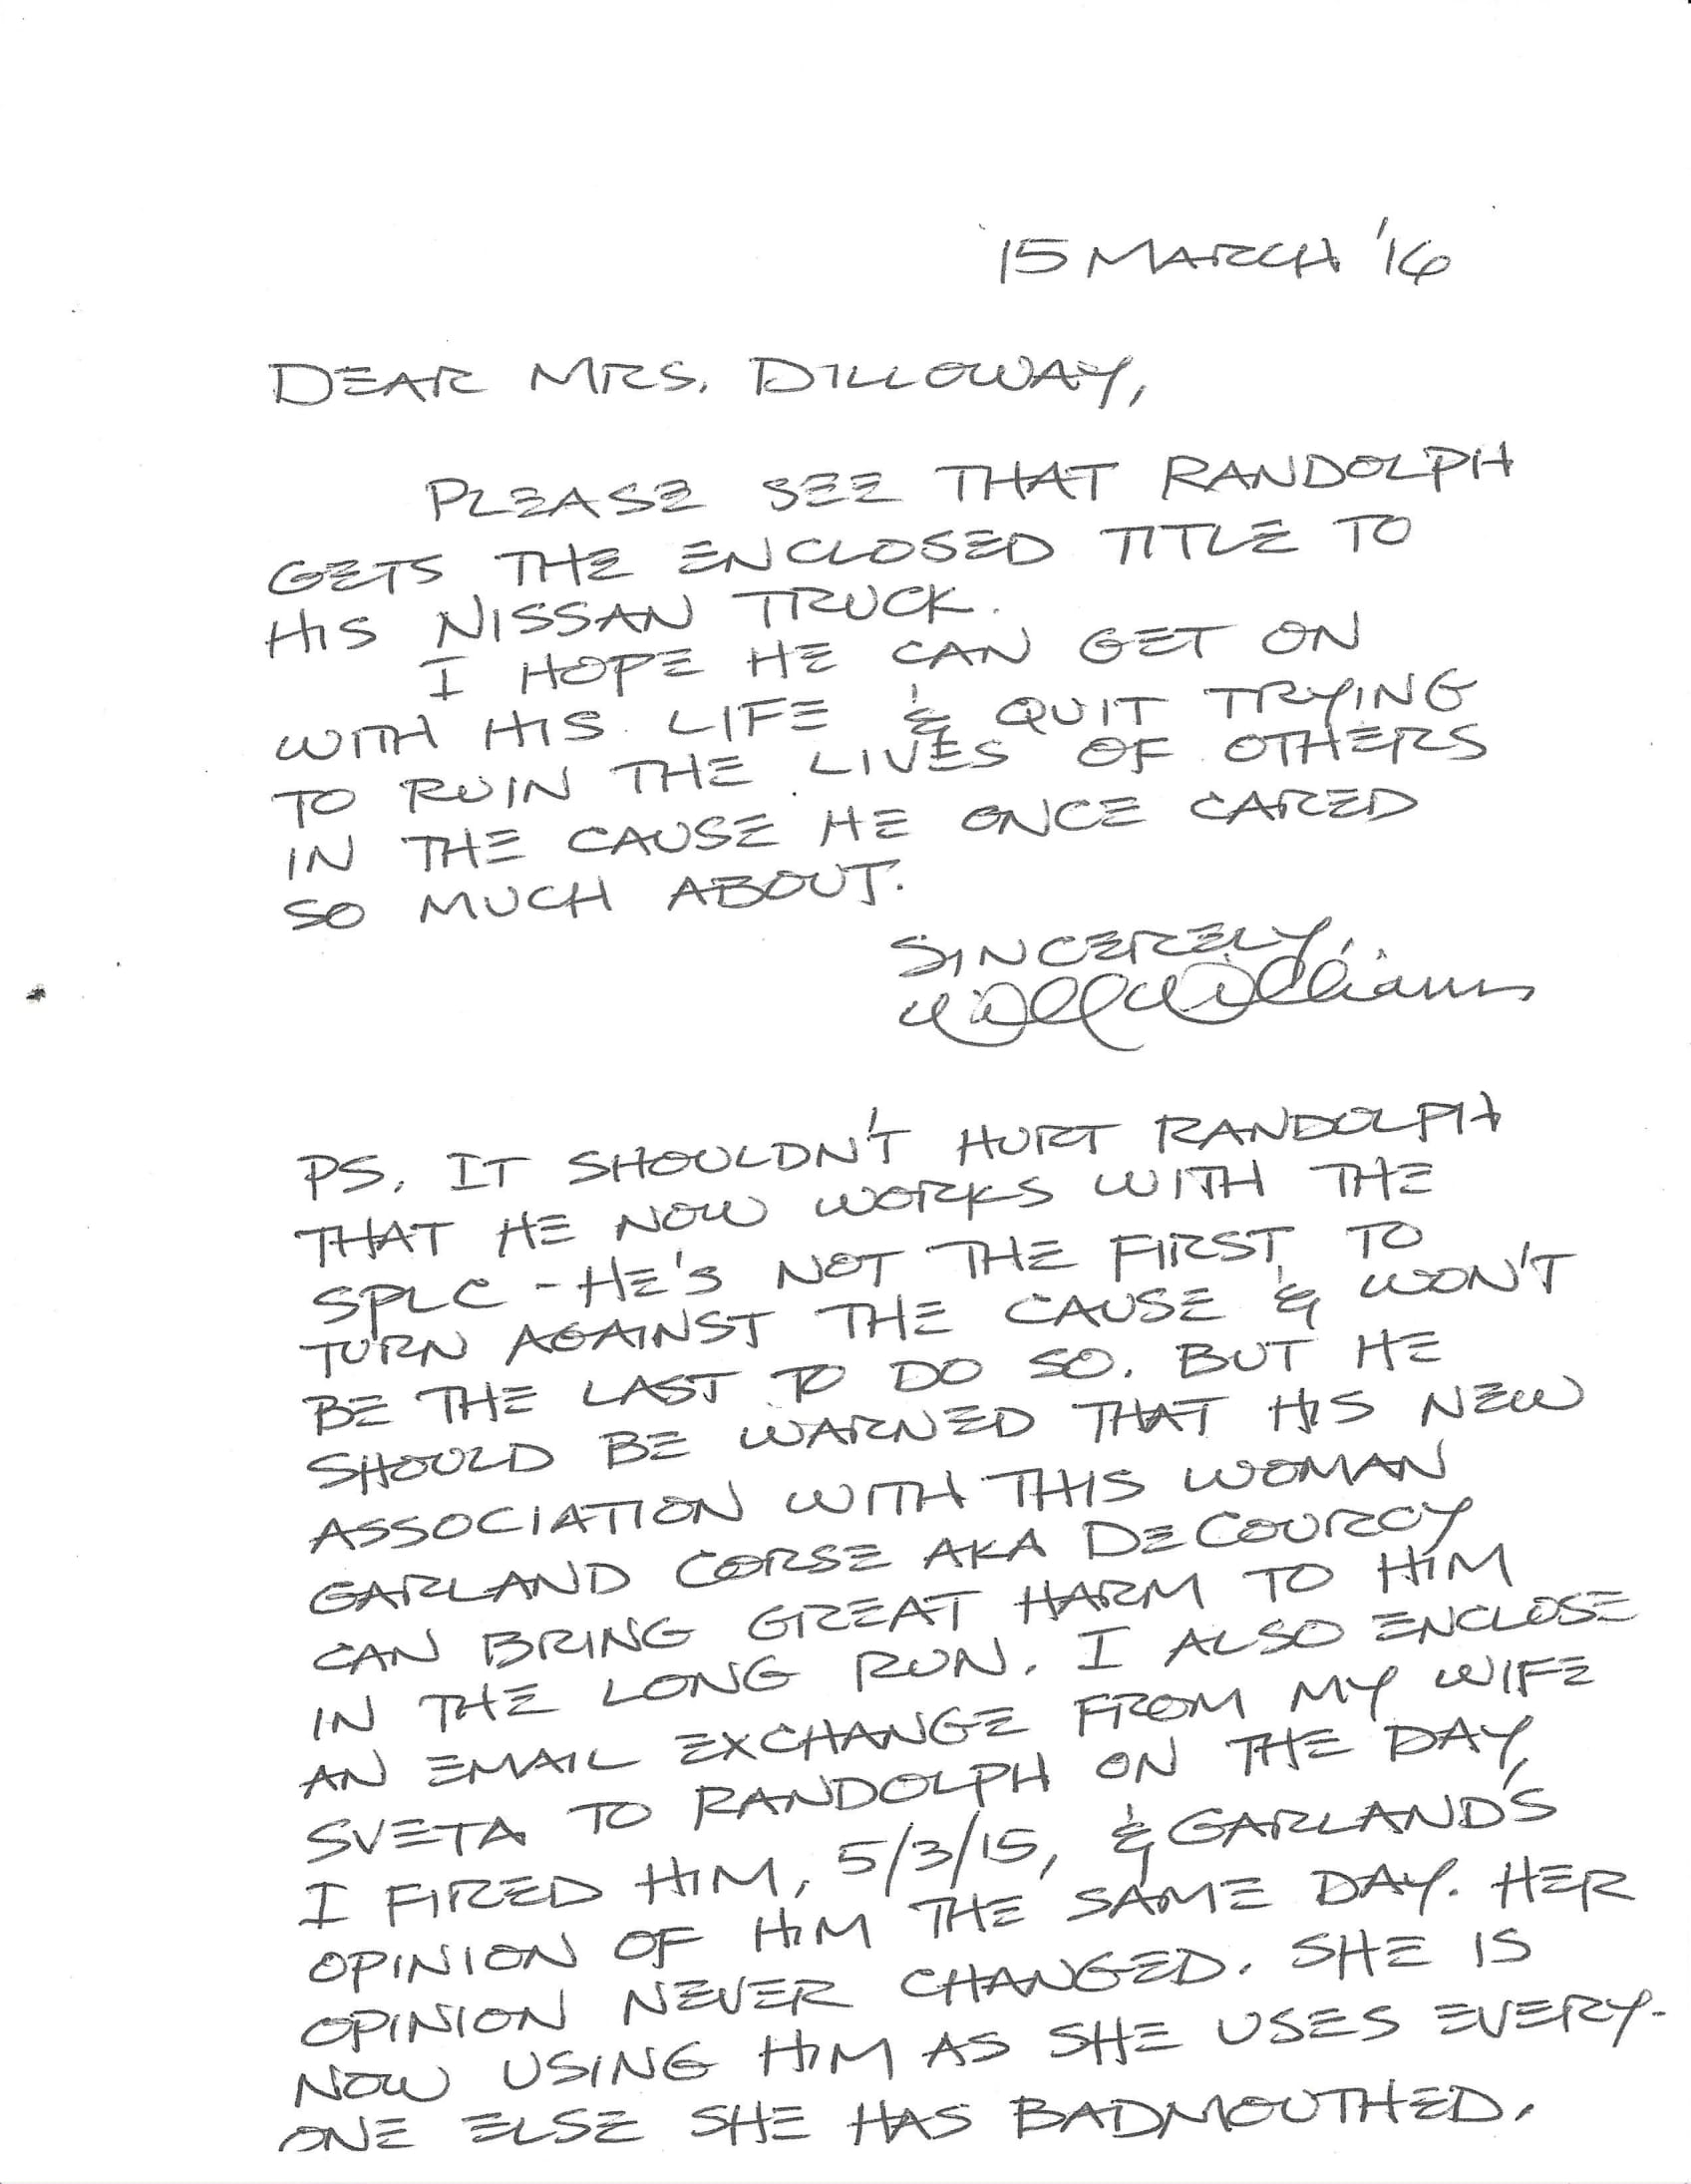 15 MARCH '16
DEAR MRS. DILLOWAY,
PLEASE SEE THAT RANDOLPH
GETS THE ENCLOSED TITLE TO
HIS NISSAN TRUCK.
I HOPE HE CAN GET ON
WITH HIS LIFE & QUIT TRYING
TO RUIN THE LIVES OF OTHERS
IN THE CAUSE HE ONCE CARED
SO MUCH ABOUT.
SINCERELY,
Will Williams
PS. IT SHOULDN'T HURT RANDOLPH
THAT HE NOW WORKS WITH THE
SPLC - HE'S NOT THE FIRST TO
TURN AGAINST THE CAUSE & WON'T
BE THE LAST TO DO SO. BUT HE
SHOULD BE WARNED THAT HIS NEW
ASSOCIATION WITH THIS WOMAN
GARLAND CORSE AKA DECOURCY
CAN BRING GREAT HARM TO HIM
IN THE LONG RUN. I ALSO ENCLOSE
AN EMAIL EXCHANGE FROM MY WIFE
SVETA TO RANDOLPH ON THE DAY
I FIRED HIM, 5/3/15, & GARLAND'S
OPINION OF HIM THE SAME DAY. HER
OPINION NEVER CHANGED. SHE IS
NOW USING HIM AS SHE USES EVERY-
ONE ELSE SHE HAS BADMOUTHED.